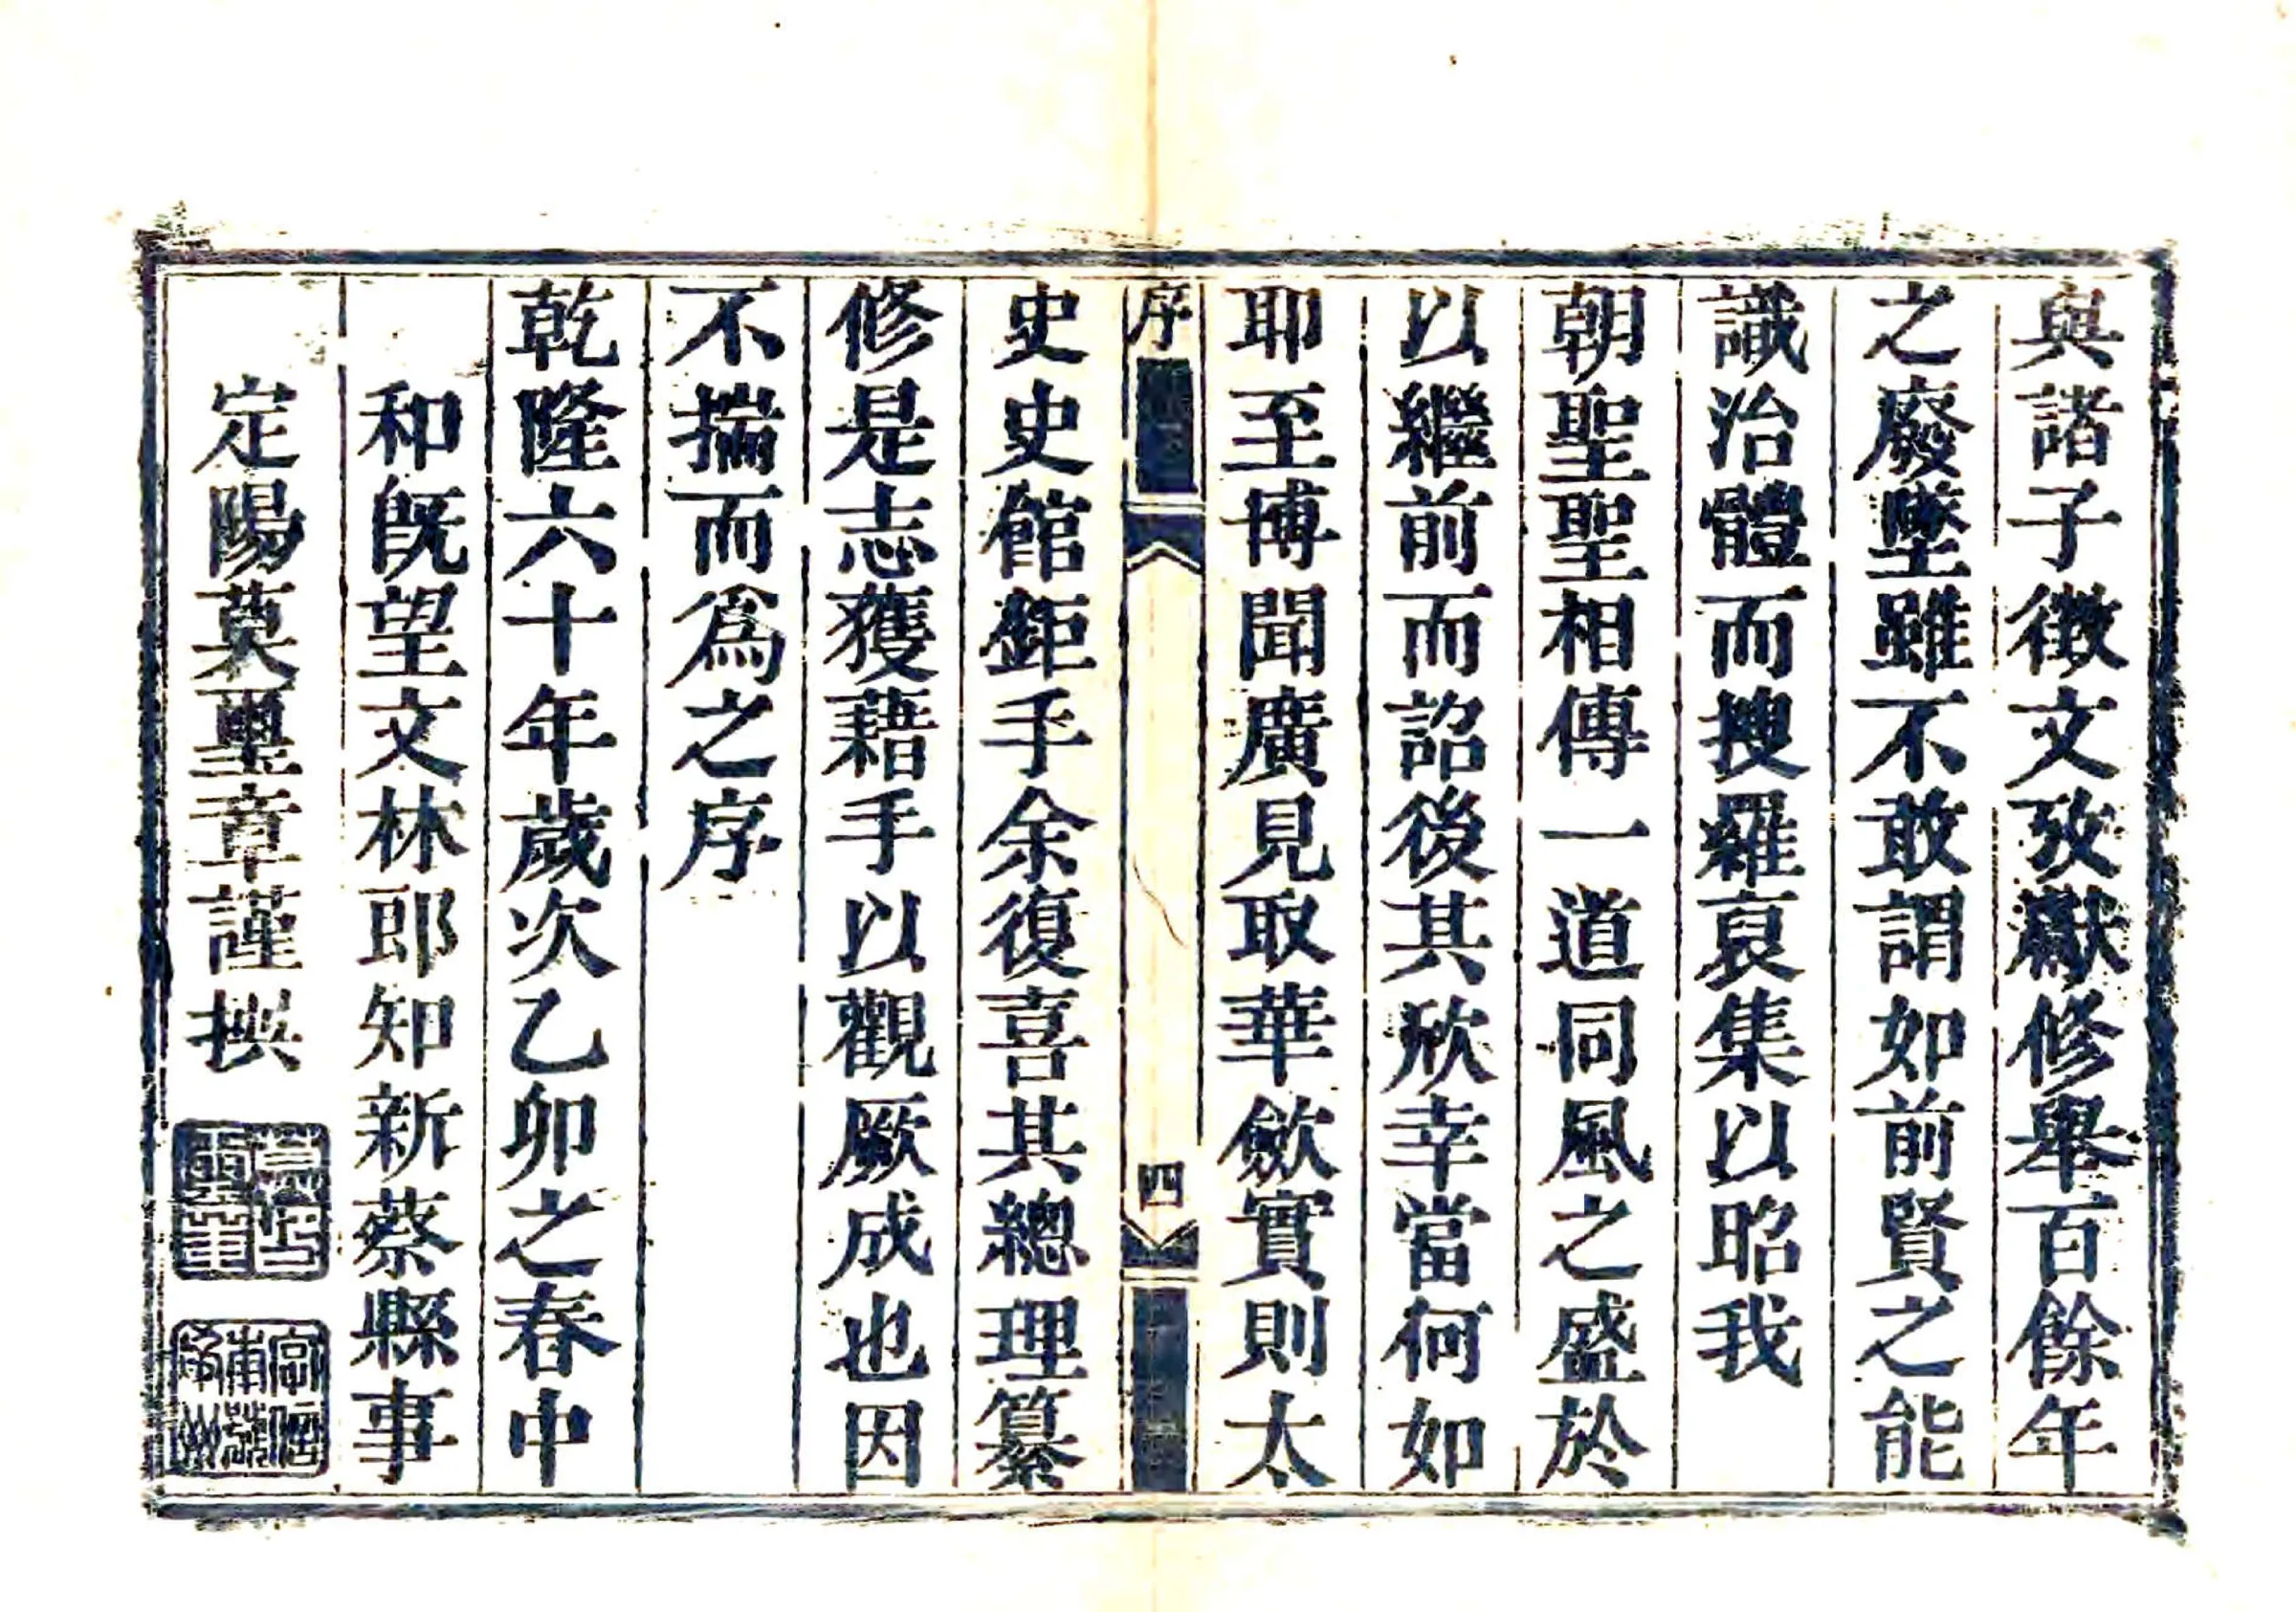 與諸子徵文攷獻修舉百餘年
之廢墜雖不敢謂如前賢之能
識治體而搜羅裒集以昭我
朝聖聖相傳一道同風之盛於
以繼前而詔後其欣幸當何如
耶至博聞廣見取華歛實則太
序
四
史史館鉅手余復喜其總理纂
修是志獲藉手以觀厥成也因
不揣而爲之序
乾隆六十年歲次乙卯之春中
和旣望文林郎知新蔡縣事
定陽莫璽章謹撰